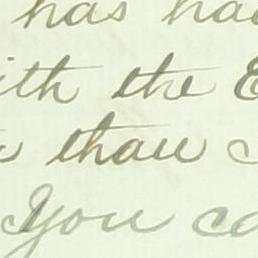 has ha
ith the E
than
You ca